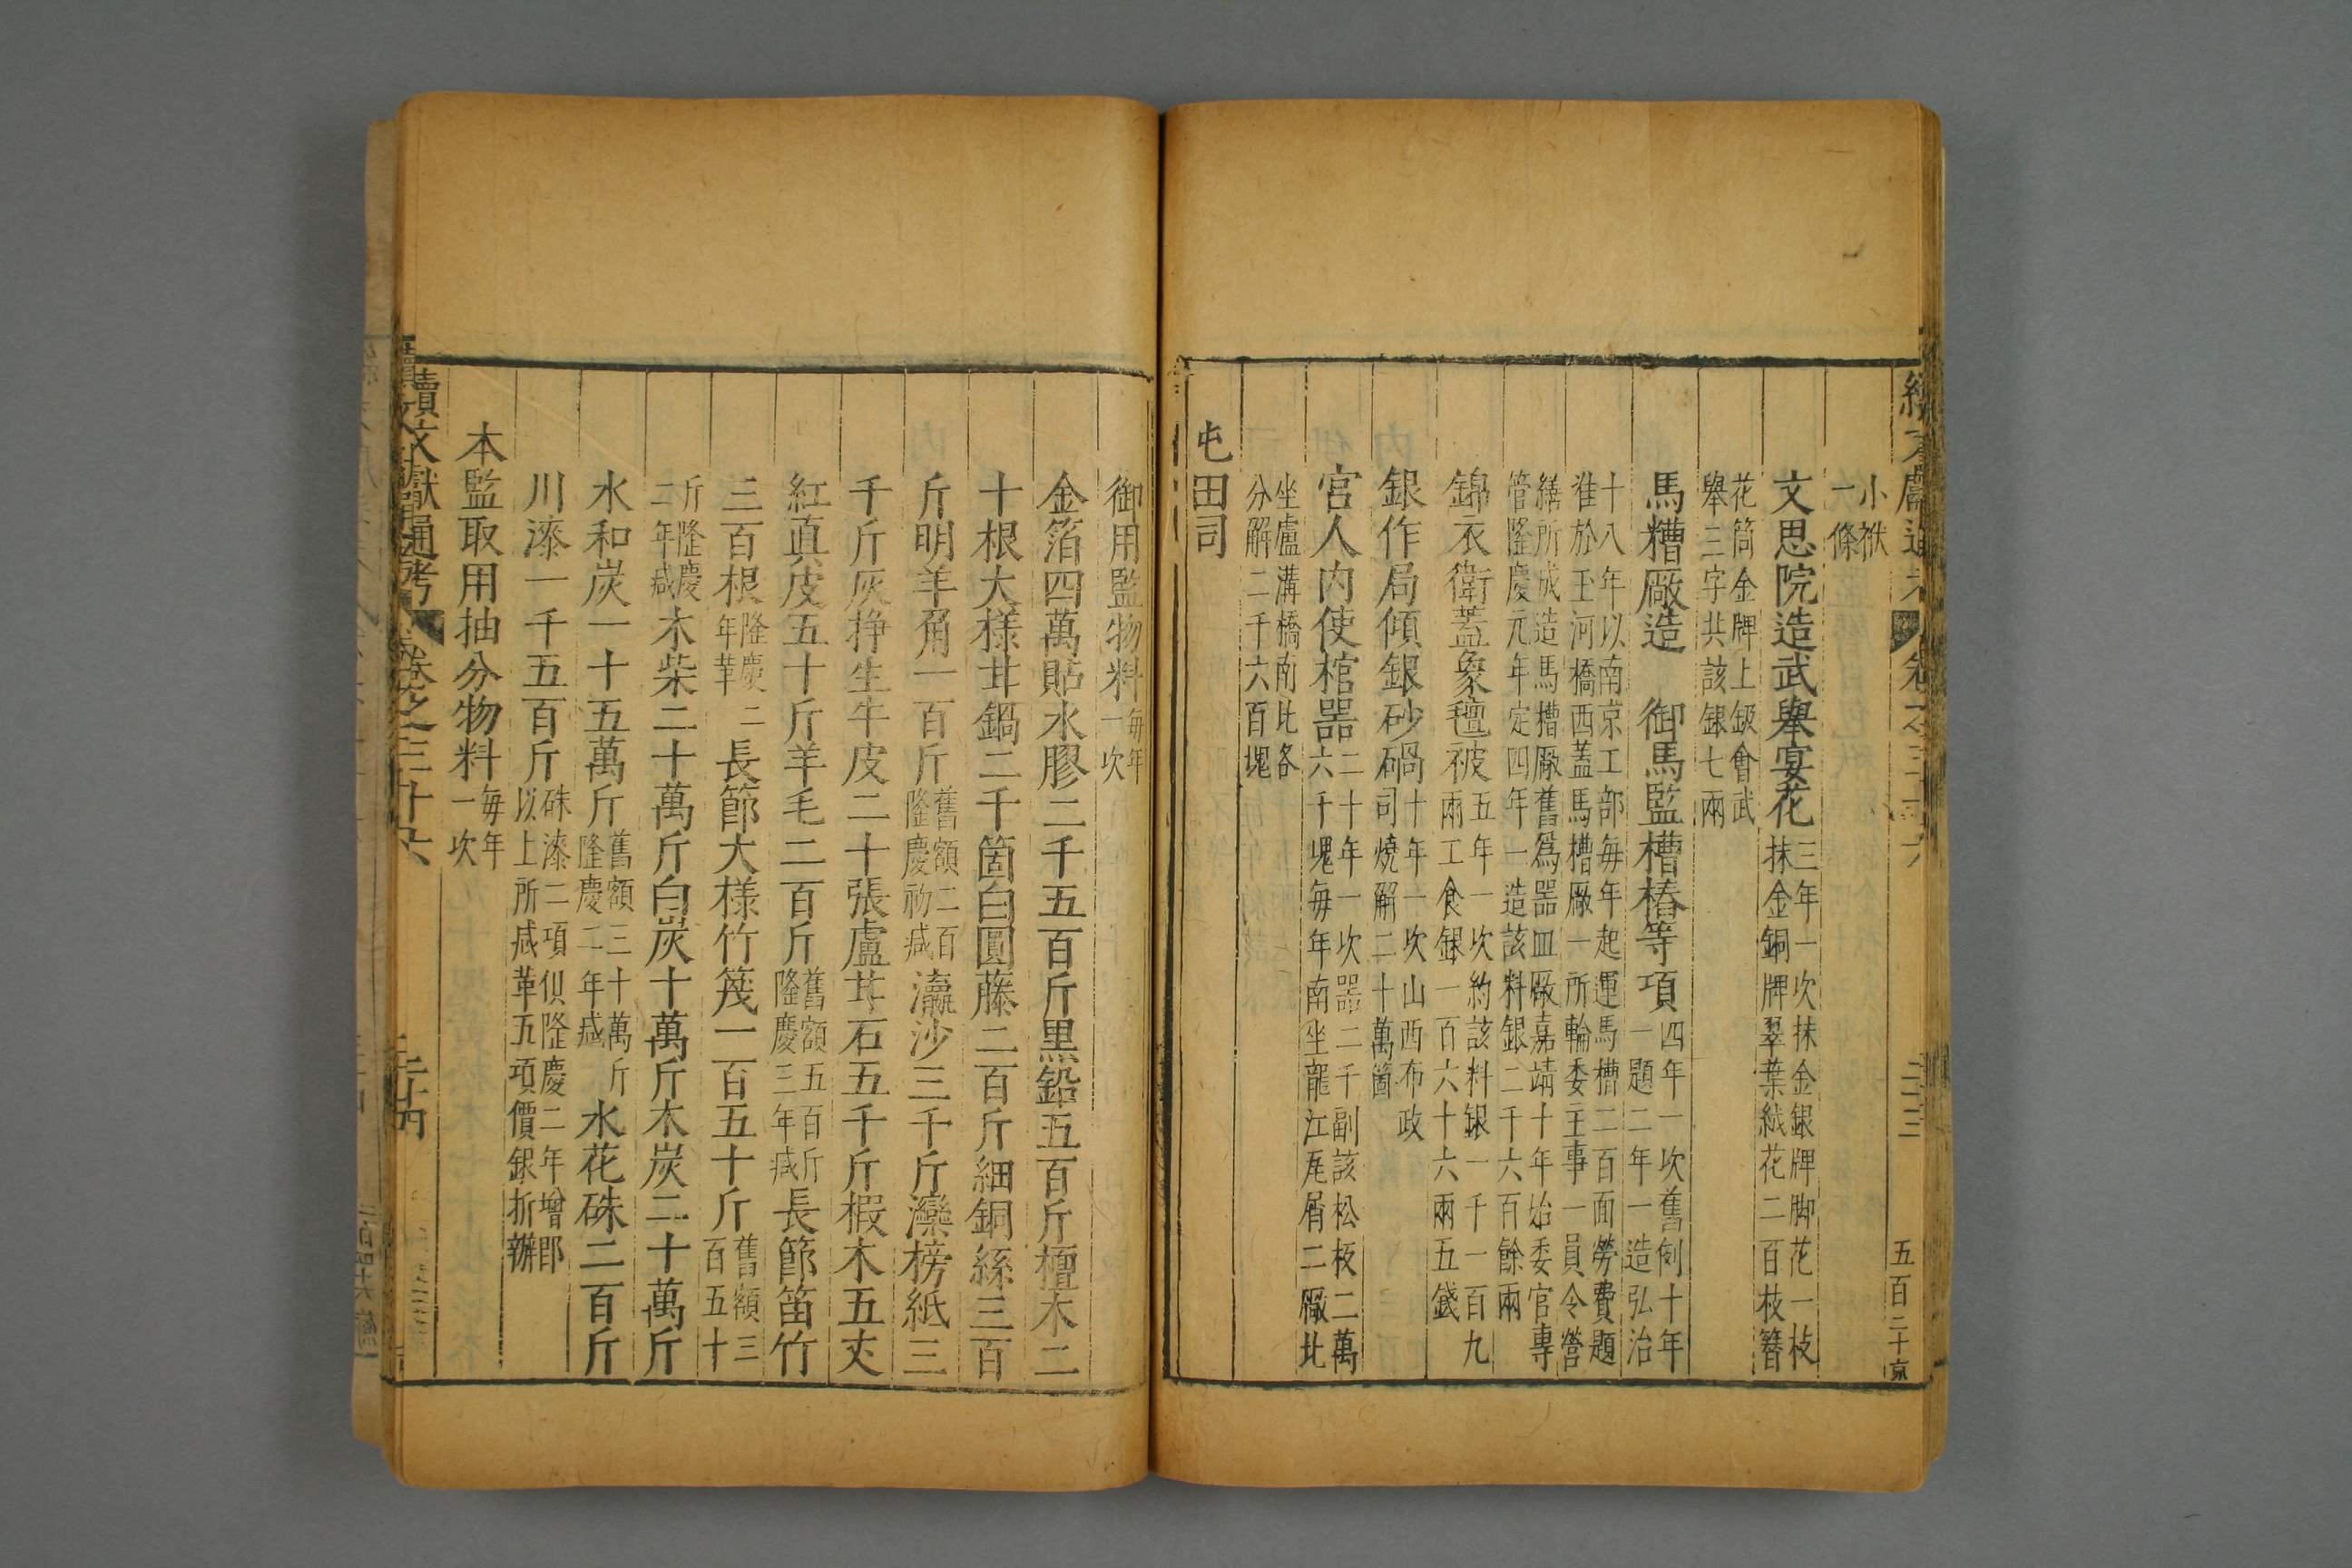 小袱
一條
文思院造武舉宴花三年一次抹金銀牌脚花一枝
抹金銅牌翠葉絨花二百枝簪
花筒金牌上鈒會武
舉三字共該銀七兩
馬糟厰造 御馬監槽樁等項四年一次舊例十年
一題二年一造弘治
十八年以南京工部每年起運馬槽二百面勞費題
准於玉河橋西蓋馬槽厰一所輪委主事一員令營
繕所成造馬槽厰舊爲器皿厰嘉靖十年始委官專
管隆慶元年定四年一造該料銀二千六百餘兩
錦衣衛蓋象氊被五年一次約該料銀一千一百九
兩工食銀一百六十六兩五錢
銀作局傾銀砂鍋十年一次山西布政
司燒解二十萬箇
宮人内使棺器二十年一次器二千副該松板二萬
六千塊每年南坐龍江瓦屑二厰北
坐盧溝橋南北各
分解二千六百塊
屯田司
御用監物料每年
一次
金箔四萬貼水膠二千五百斤黒鉛五百斤檀木二
十根大樣甘鍋二千箇白圓藤二百斤細銅絲三百
斤明羊角一百斤舊額二百
隆慶初减瀛沙三千斤灤榜紙三
千斤灰挣生牛皮二十張盧甘石五千斤椵木五丈
紅真皮五十斤羊毛二百斤舊額五百斤
隆慶三年减長節笛竹
三百根隆慶二
年革長節大樣竹篾一百五十斤舊額三
百五十
斤隆慶
二年减木柴二十萬斤白炭十萬斤木炭二十萬斤
水和炭一十五萬斤舊額三十萬斤
隆慶二年减水花硃二百斤
川漆一千五百斤硃漆二項俱隆慶二年增即
以上所减革五項價銀折辦
本監取用抽分物料每年
一次
續文獻通考 卷之三十六